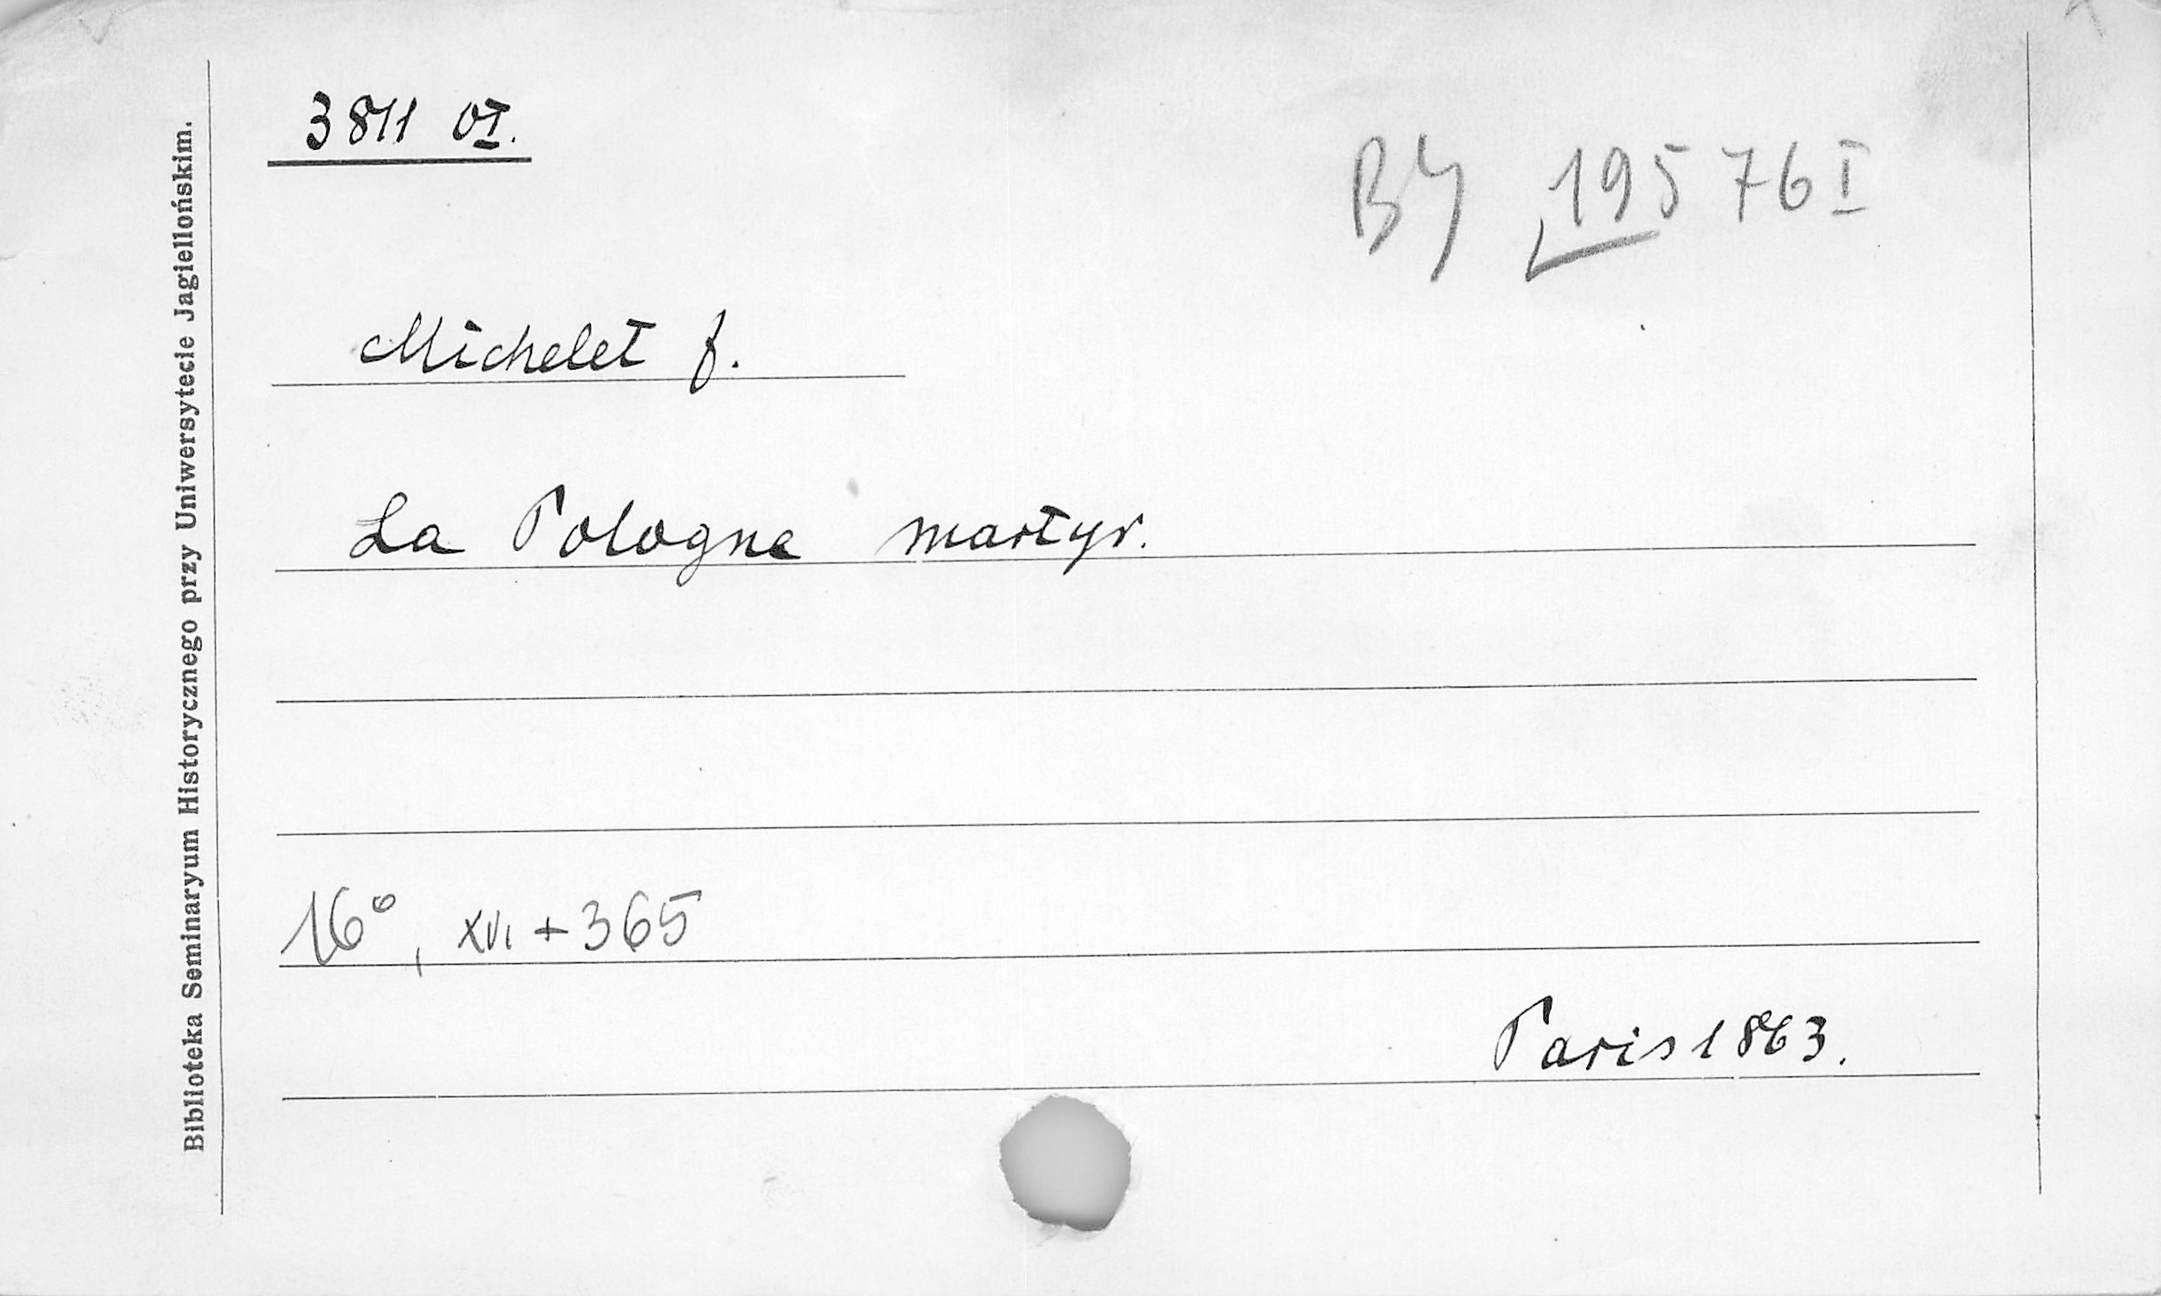 3811 OI.
BJ 19576 I
Michelet J.
La Pologne martyr.
16°, XVI + 365
Paris 1863.
Biblioteka Seminaryum Historycznego przy Uniwersytecie Jagiellońskim.